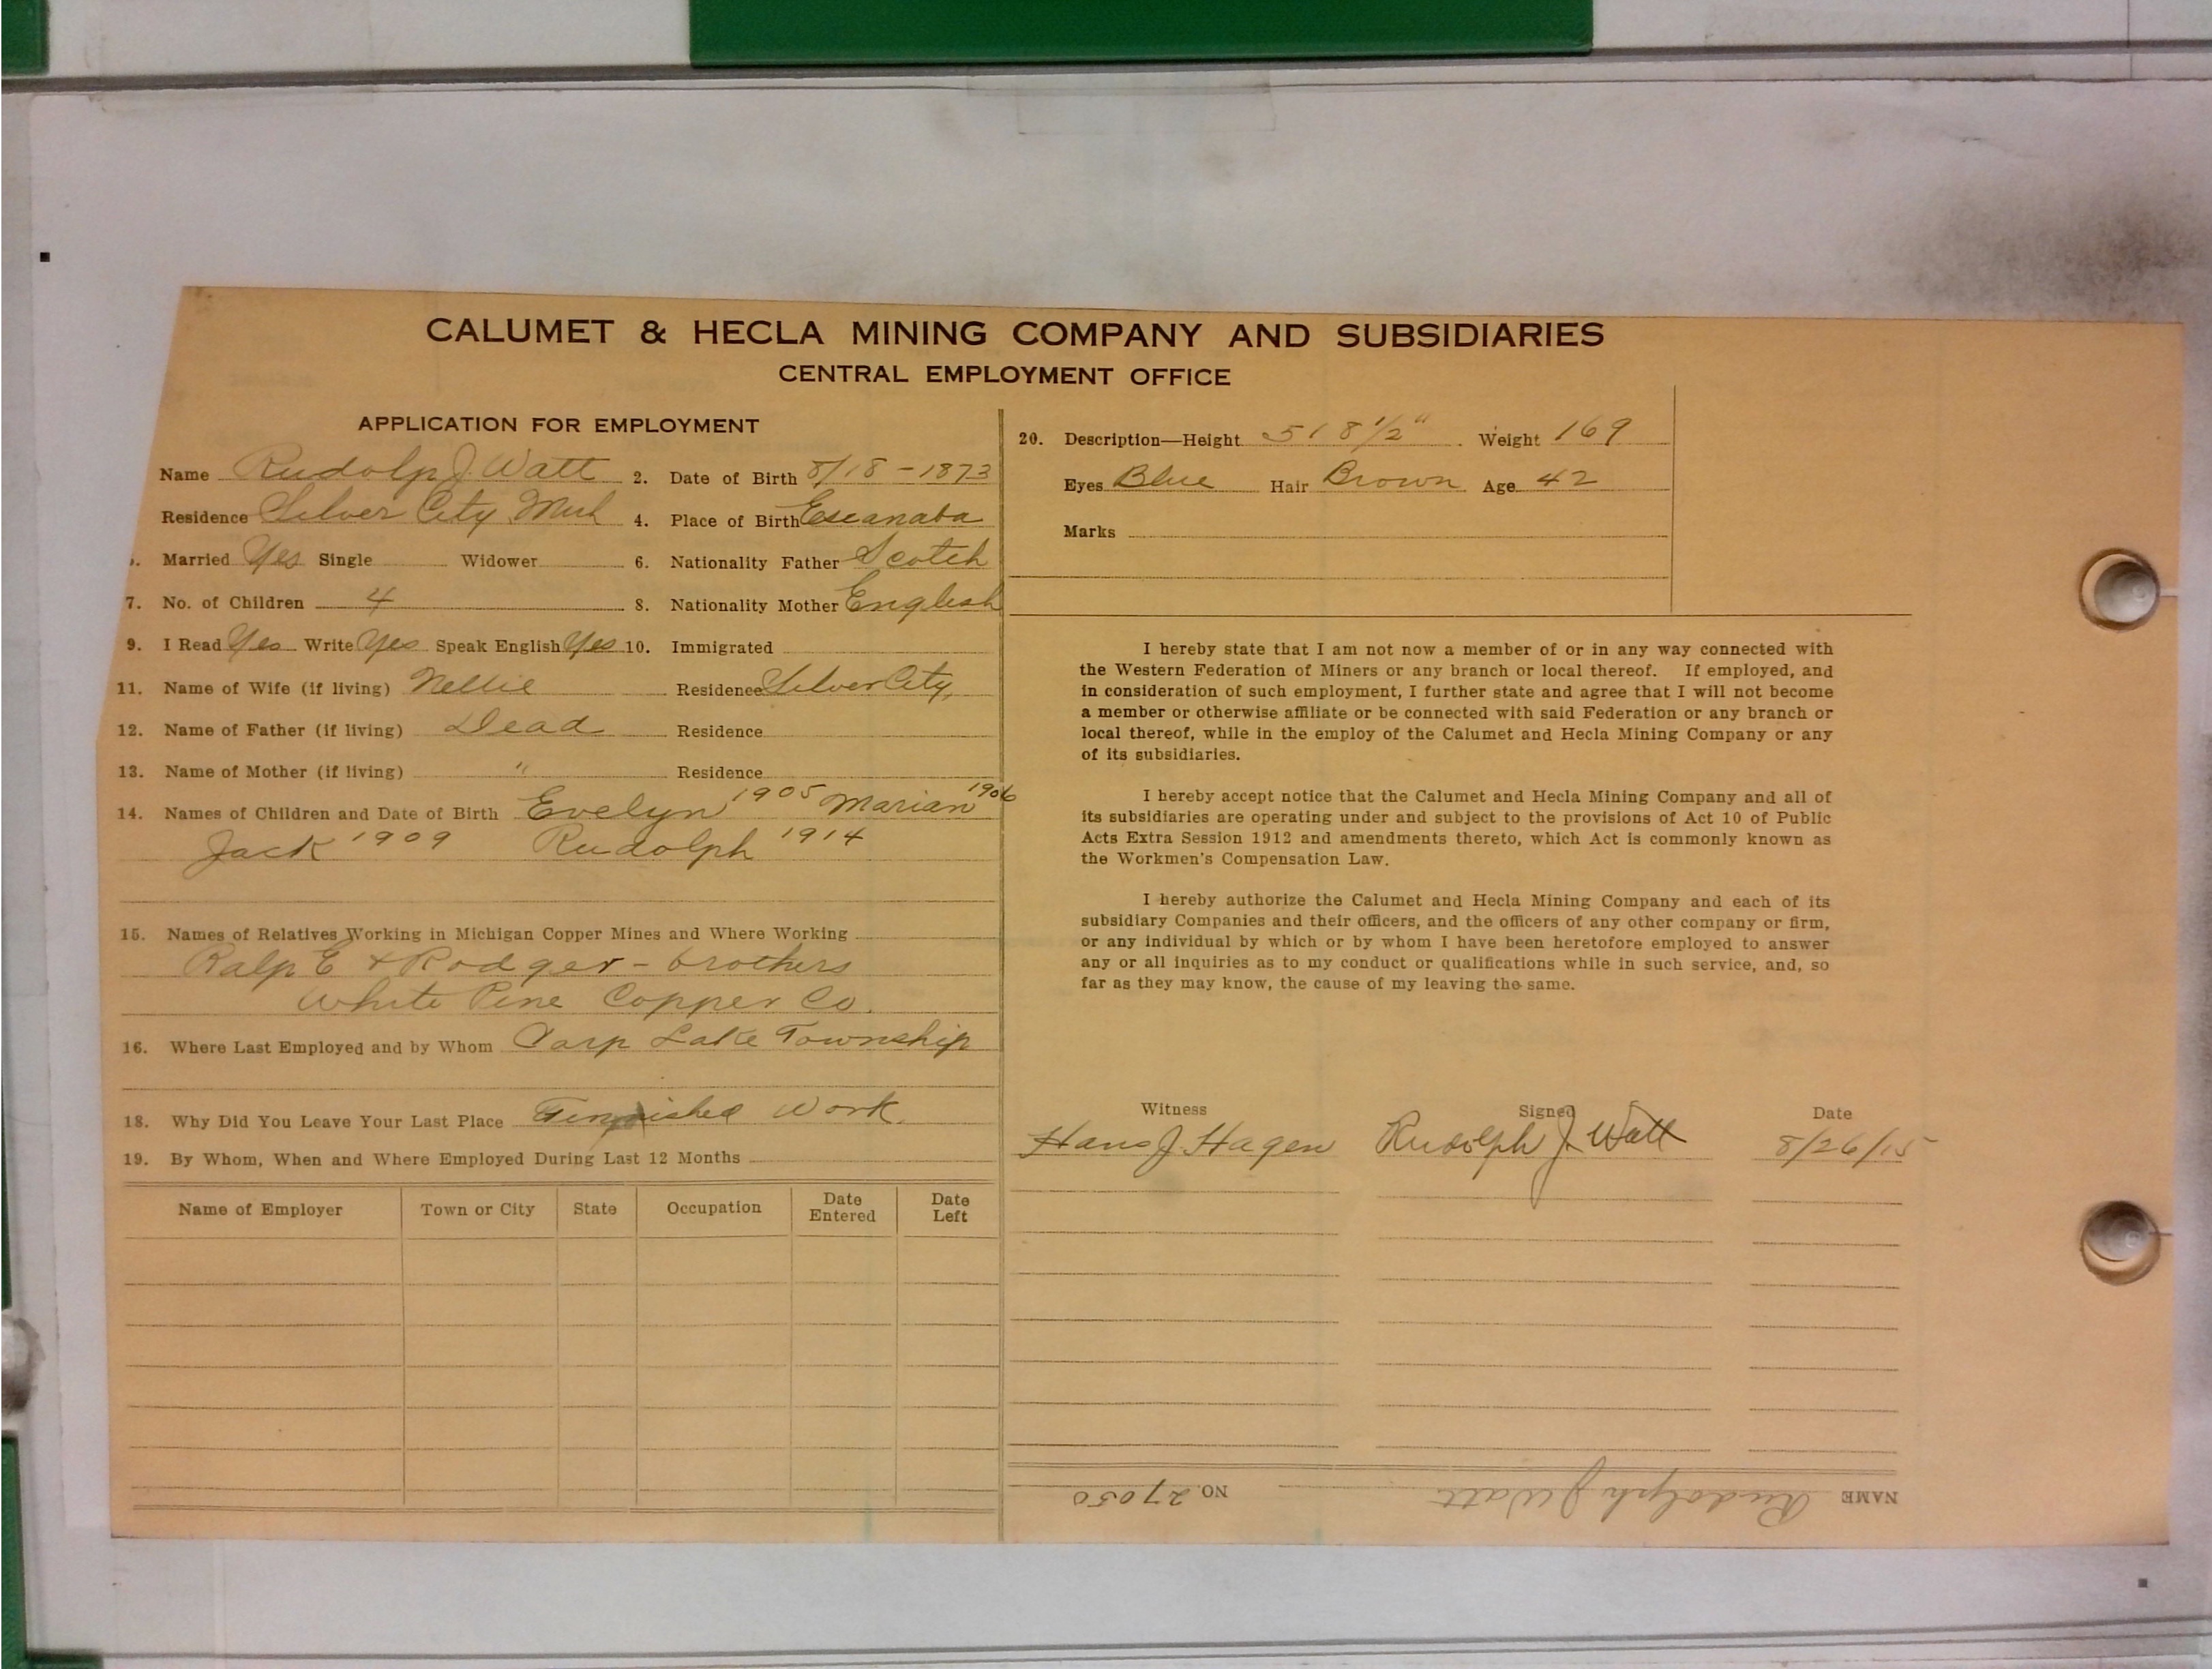 CALUMET & HECLA MINING COMPANY AND SUBSIDIARIES
CENTRAL EMPLOYMENT OFFICE
APPLICATION FOR EMPLOYMENT
Name Rudolp J. Watt 2. Date of Birth 8/18-1873
Residence Silver City Mich 4. Place of Birth Escanaba
Married Yes Single Widower 6. Nationality Father Scotch
7. No. of Children 4 8. Nationality Mother English
9. I Read Yes Write Yes Speak English Yes 10. Immigrated
11. Name of Wife (if living) Nellie Residence Silver City,
12. Name of Father (if living) Dead Residence
13. Name of Mother (if living) " Residence
14. Names of Children and Date of Birth Evelyn 1905 Marian 1906
Jack 1909 Rudolph 1914
15. Names of Relatives Working in Michigan Copper Mines and Where Working
Ralp E & Rodger - brothers
White Pine Copper Co.
16. Where Last Employed and by Whom Carp Lake Township
18. Why Did You Leave Your Last Place Work.
19. By Whom, When and Where Employed During Last 12 Months
Name of Employer Town or City State Occupation Date Entered Date Left
20. Description—Height 5' 8 1/2" Weight 169
Eyes Blue Hair Brown Age 42
Marks
I hereby state that I am not now a member of or in any way connected with
the Western Federation of Miners or any branch or local thereof. If employed, and
in consideration of such employment, I further state and agree that I will not become
a member or otherwise affiliate or be connected with said Federation or any branch or
local thereof, while in the employ of the Calumet and Hecla Mining Company or any
of its subsidiaries.
I hereby accept notice that the Calumet and Hecla Mining Company and all of
its subsidiaries are operating under and subject to the provisions of Act 10 of Public
Acts Extra Session 1912 and amendments thereto, which Act is commonly known as
the Workmen's Compensation Law.
I hereby authorize the Calumet and Hecla Mining Company and each of its
subsidiary Companies and their officers, and the officers of any other company or firm,
or any individual by which or by whom I have been heretofore employed to answer
any or all inquiries as to my conduct or qualifications while in such service, and, so
far as they may know, the cause of my leaving the same.
Witness Signed Date
Hans J. Hagen Rudolph J. Watt 8/26/15
NAME Rudolph J Watt NO. 27050